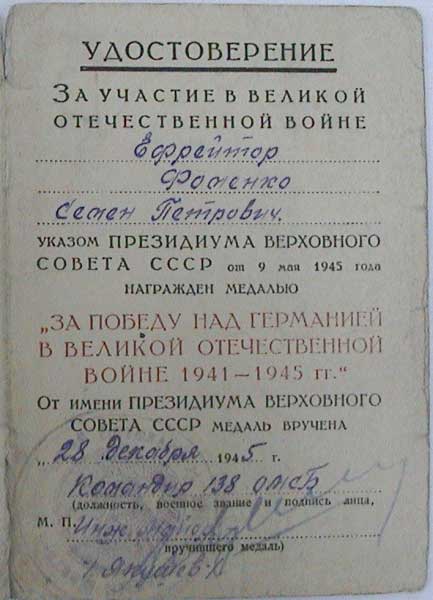 УДОСТОВЕРЕНИЕ
ЗА УЧАСТИЕ В ВЕЛИКОЙ
ОТЕЧЕСТВЕННОЙ ВОЙНЕ
Ефрейтор
Фоменко
Семен Петрович.
УКАЗОМ ПРЕЗИДИУМА ВЕРХОВНОГО
СОВЕТА СССР от 9 мая 1945 года
НАГРАЖДЕН МЕДАЛЬЮ
„ЗА ПОБЕДУ НАД ГЕРМАНИЕЙ
В ВЕЛИКОЙ ОТЕЧЕСТВЕННОЙ
ВОЙНЕ 1941—1945 гг.“
ОТ ИМЕНИ ПРЕЗИДИУМА ВЕРХОВНОГО
СОВЕТА СССР МЕДАЛЬ ВРУЧЕНА
„28 Декабря 1945 г.
Командир 138 ОМСБ
(должность, военное звание и подпись лица,
М. П. Инж
вручившего медаль)